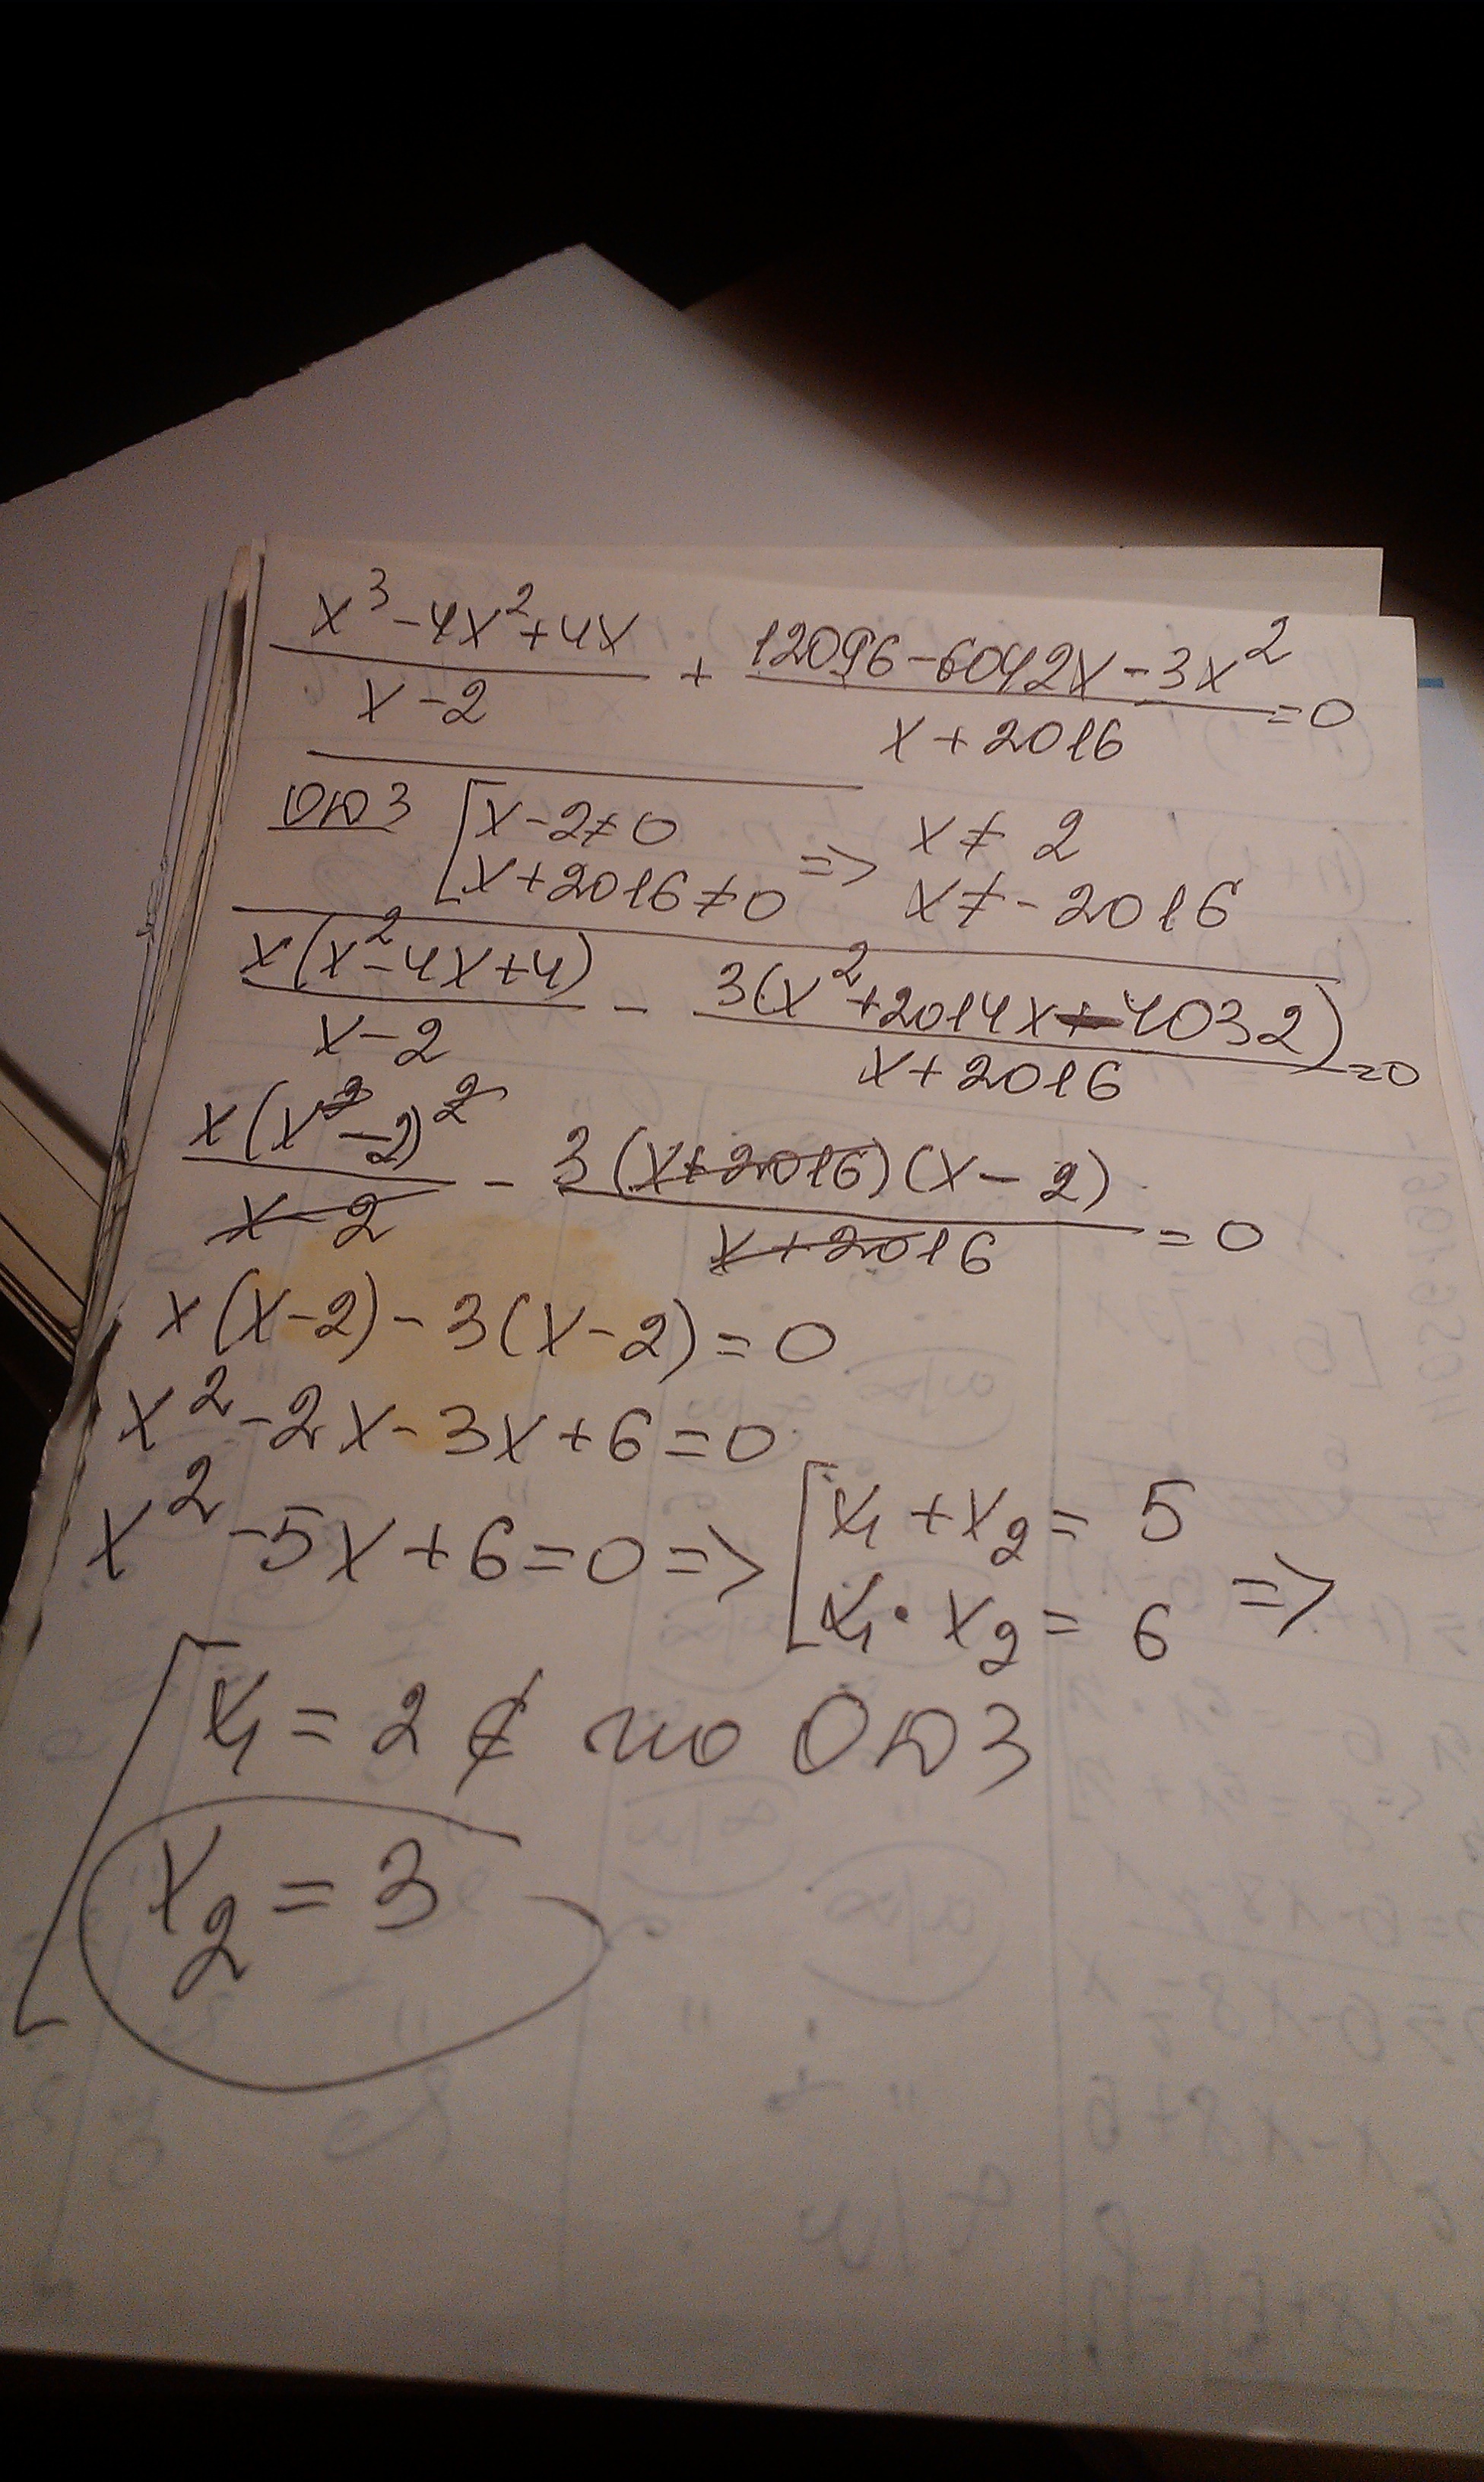 x³-4x²+4x / x-2 + 12096-6042x-3x² / x+2016 =0
ОДЗ [x-2≠0 => x≠2
x+2016≠0 x≠-2016
x(x²-4x+4) / x-2 - 3(x²+2014x-4032) / x+2016 =0
x(x-2)² / x-2 - 3(x+2016)(x-2) / x+2016 =0
x(x-2)-3(x-2)=0
x²-2x-3x+6=0
x²-5x+6=0=> [x₁+x₂=5
x₁·x₂=6 =>
[x₁=2 ∉ по ОДЗ
x₂=3